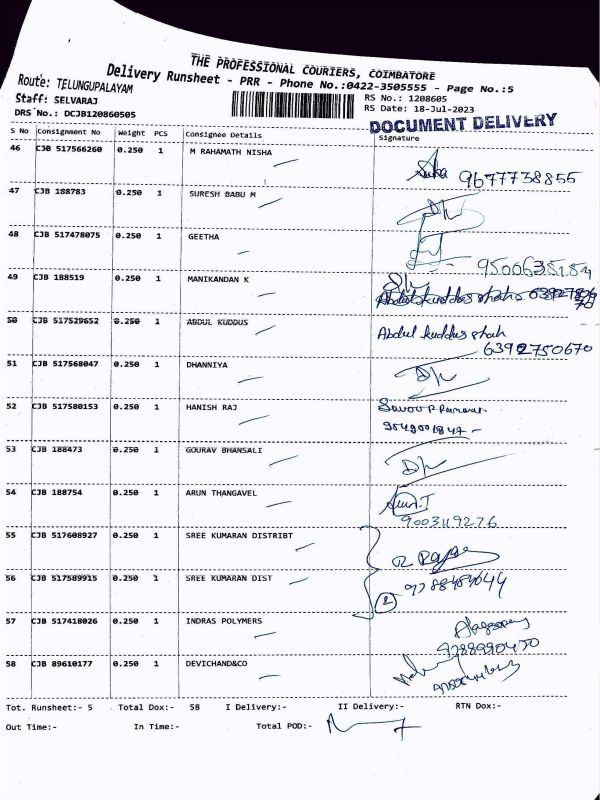 THE PROFESSIONAL COURIERS, COIMBATORE
Delivery Runsheet - PRR - Phone No.:0422-3505555 - Page No.:5
Route: TELUNGUPALAYAM
Staff: SELVARAJ
DRS No.: DCJB120860505
RS No.: 1208605
RS Date: 18-Jul-2023
DOCUMENT DELIVERY
S No Consignment No Weight PCS Consignee Details Signature
46 CJB 517566260 0.250 1 M RAHAMATH NISHA 9677738855
47 CJB 188783 0.250 1 SURESH BABU M
48 CJB 517478075 0.250 1 GEETHA 9500635184
49 CJB 188519 0.250 1 MANIKANDAN K
50 CJB 517529652 0.250 1 ABDUL KUDDUS Abdul kuddus shah
6392750670
51 CJB 517568047 0.250 1 DHANNIYA
52 CJB 517580153 0.250 1 HANISH RAJ
53 CJB 188473 0.250 1 GOURAV BHANSALI
54 CJB 188754 0.250 1 ARUN THANGAVEL Arun.T
9003119276
55 CJB 517608927 0.250 1 SREE KUMARAN DISTRIBT
56 CJB 517589915 0.250 1 SREE KUMARAN DIST
2
57 CJB 517418026 0.250 1 INDRAS POLYMERS
58 CJB 89610177 0.250 1 DEVICHAND&CO
Tot. Runsheet:- 5 Total Dox:- 58 I Delivery:- II Delivery:- RTN Dox:-
Out Time:- In Time:- Total POD:-